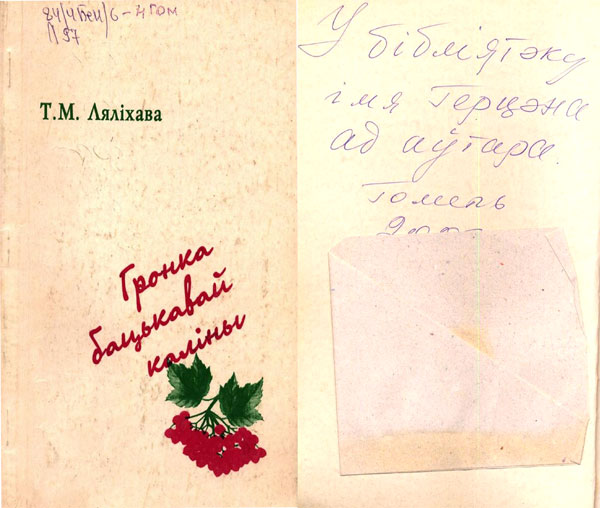 84(4Беи)6-4Гом
Л97
Т.М. Ляліхава
Гронка
бацькавай
каліны
У бібліятэку
імя Герцэна
ад аўтара.
Гомель